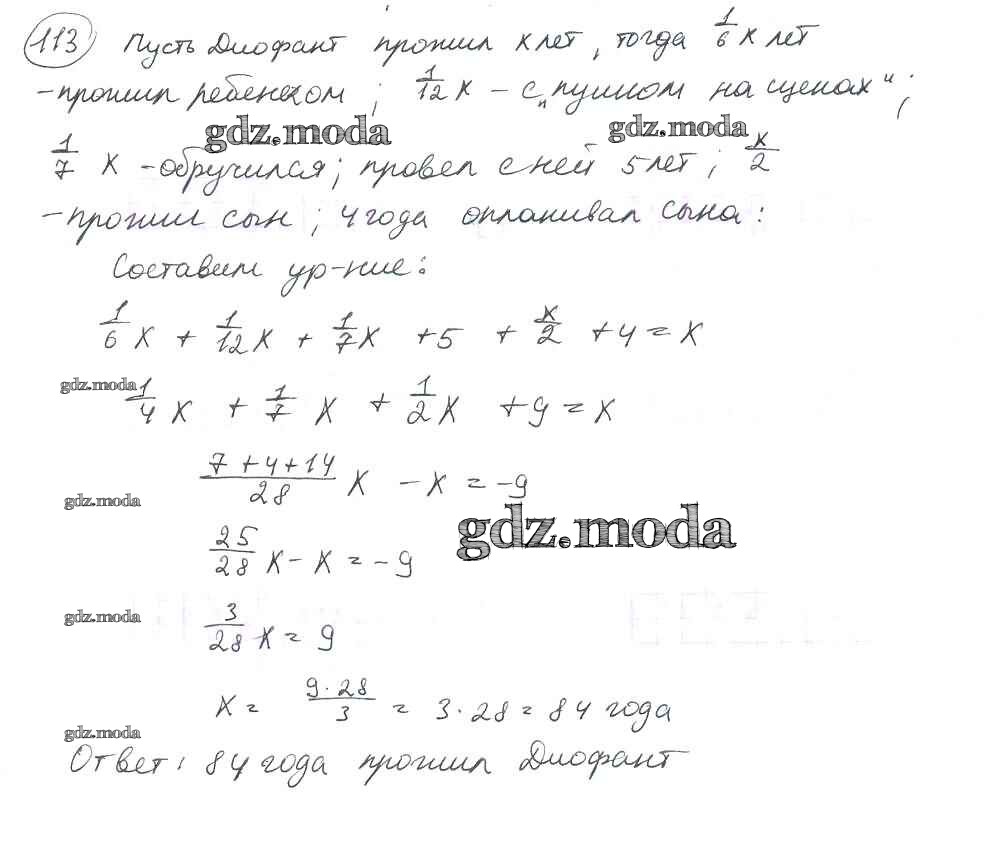 113 Пусть Диофант прожил x лет, тогда 1/6 x лет
- прожил ребенком; 1/12 x - с "пушком на щеках";
gdz.moda gdz.moda
1/7 x - обручился; провел с ней 5 лет; x/2
- прожил сын; 4 года оплакивал сына:
Составим ур-ние:
1/6 x + 1/12 x + 1/7 x + 5 + x/2 + 4 = x
gdz.moda
1/4 x + 1/7 x + 1/2 x + 9 = x
(7 + 4 + 14)/28 x - x = -9
gdz.moda
gdz.moda
25/28 x - x = -9
gdz.moda
3/28 x = 9
x = (9·28)/3 = 3·28 = 84 года
gdz.moda
Ответ: 84 года прожил Диофант